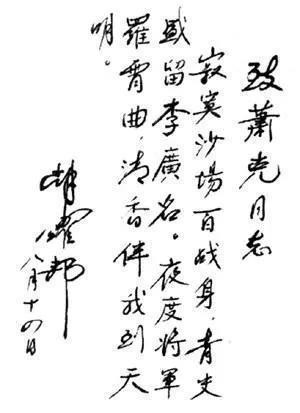 致萧克同志
寂寞沙场百战身，青史
盛留李廣名。夜度将軍
羅霄曲，清香伴我到天
明。
胡耀邦
八月十四日